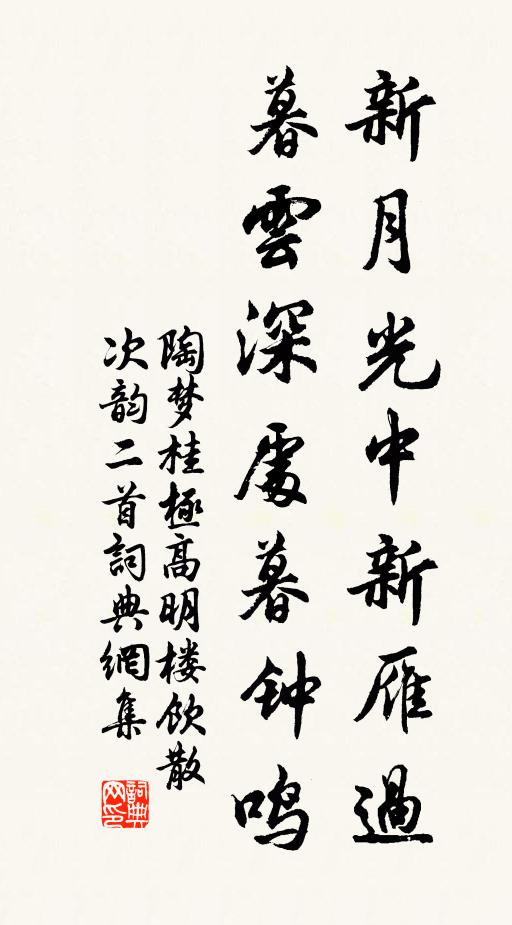 新月光中新雁過
暮雲深處暮钟鸣
陶梦桂極高明楼饮散
次韵二首詞典網集
詞典网印